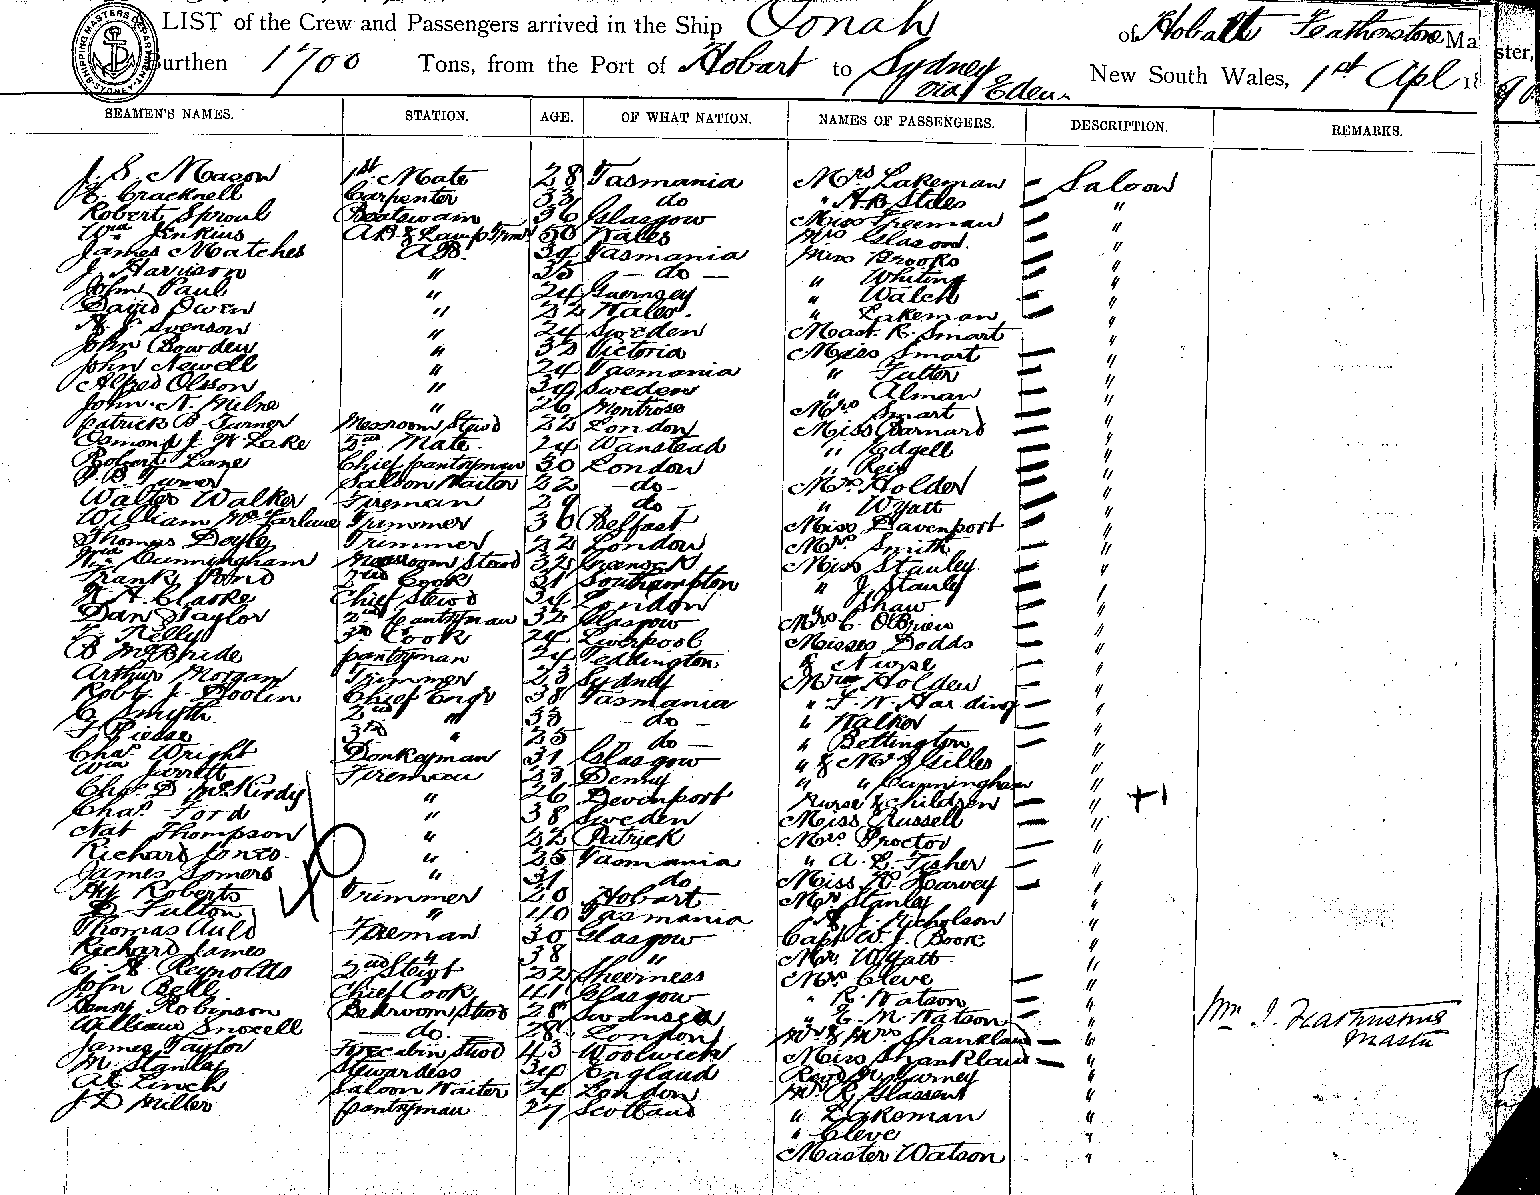 LIST of the Crew and Passengers arrived in the Ship Oonah of Hobart Featherstone Ma ster,
Burthen 1700 Tons, from the Port of Hobart to Sydney via Eden New South Wales, 1st Apl 18 90
SEAMEN'S NAMES. STATION. AGE. OF WHAT NATION. NAMES OF PASSENGERS. DESCRIPTION. REMARKS.
J. S. Mason 1st Mate 28 Tasmania Mrs Lakeman Saloon
Cracknell Carpenter 33 do "
Robert Sproul Boatswain 36 Glasgow Miss Freeman "
Wm Jenkins AB & Lamp Trmr 50 Wales Mrs Glason "
James Matches A.B. 39 Tasmania Miss Brooks "
J. Harrison " 35 — do — " Whiting "
John Paul " 24 Guernsey " Walch "
David Owen " 22 Wales. " Lakeman "
Svenson " 24 Sweden Mast. R. Smart "
John Bowden " 32 Victoria Miss Smart "
John Newell " 24 Tasmania " "
Alfred Olsson " Sweden " Alman "
John N. Milne " 26 Montrose Mrs Smart "
Patrick B. Turner Messroom Stewd 22 London Miss Barnard "
Osmond J. W Lake 2nd Mate. 24 Wanstead " Edgell "
Robert Lane Chief pantryman 30 London " Reid "
Turner Saloon Waiter 22 — do — Mr. Holder "
Walter Walker Fireman 29 do — " Wyatt "
William McFarlane Trimmer 36 Belfast Miss Davenport "
Thomas Doyle Trimmer 22 London Mrs Smith "
Wm Cunningham Messroom Stewd 32 Greenock Miss Stanley "
Frank Pond 2nd Cook 31 Southampton " J Stanly "
Clarke Chief Stewd 34 London " Shaw "
Dan Taylor 2nd Pantryman 32 Glasgow Mrs C. OBrien "
Kelly 3rd Cook 24 Liverpool Misses Dodds "
B McBride pantryman 24 Teddington & Nurse "
Arthur Morgan Trimmer 23 Sydney Holden "
Robt. J. Doolin Chief Engr 38 Tasmania " F. W. Harding "
C. Smyth 2nd " 33 — do " Walker "
Piesse 3rd " 25 — do — " Bettington "
Chas. Wright Donkeyman 31 Glasgow " & Mrs Gilles "
Wm Jerrett Fireman 23 Denny " " Cunningham "
Chas. D. McKirdy " 26 Devenport Nurse & children " +1
Chas. Ford " 38 Sweden Miss Russell "
Nat Thompson " 22 Patrick Mrs Proctor "
Richard Jones " 25 Tasmania " A. E. Fisher "
James Somers " 31 do Miss Harvey "
Hy Roberts Trimmer 20 Hobart Mr Stanley "
Fulton " 40 Tasmania Nicholson "
Thomas Auld Fireman 30 Glasgow Capt W. J. Book "
Richard James " 38 " Mr. Wyatt "
Reynolds 2nd Stewt 22 Sheerness Mrs. Cleve "
John Bell Chief Cook 41 Glasgow " R. Watson "
Henry Robinson Bedroom Stewd 28 Swansea " E. M Watson "
William Snoxell — do. London Mr & Mrs Shankland "
James Taylor Forecabin Stewd 43 Woolwich Miss Shankland "
M. Stanley Stewardess 34 England Revd "
Al Linch Saloon Waiter 24 London Mr R. "
J D Miller pantryman 27 Scotland " Lakeman "
" Cleve "
Master Watson "
40
Wm J. Featherstone
Master